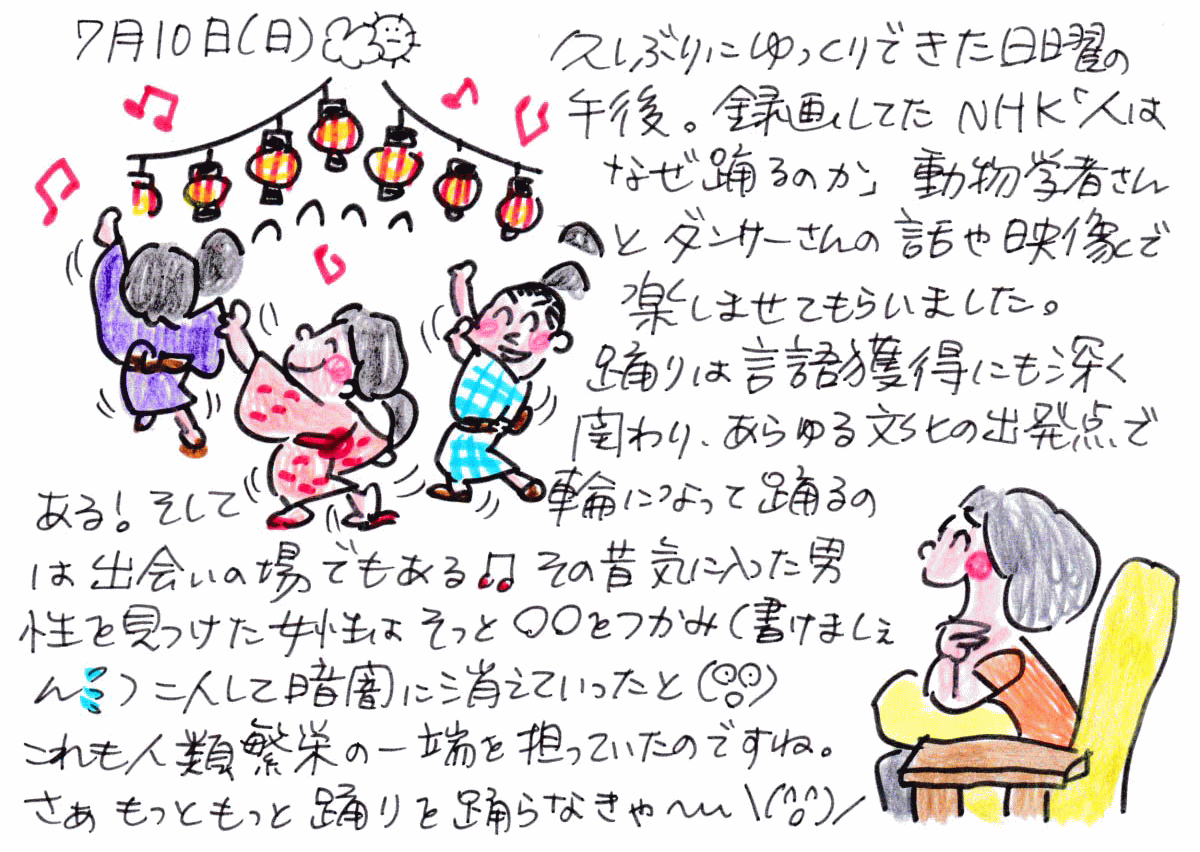 7月10日(日)
久しぶりにゆっくりできた日曜の
午後。録画してた NHK「人は
なぜ踊るのか」動物学者さん
とダンサーさんの話や映像で
楽しませてもらいました。
踊りは言語獲得にも深く
関わり、あらゆる文化の出発点で
ある!そして 輪になって踊るの
は出会いの場でもある♫ その昔気に入った男
性を見つけた女性は そっと〇〇をつかみ(書けましぇ
ん💦)二人して暗闇に消えていったと(゚o゚)
これも人類繁栄の一端を担っていたのですね。
さぁ もっともっと 踊りを踊らなきゃ〜\(^o^)/